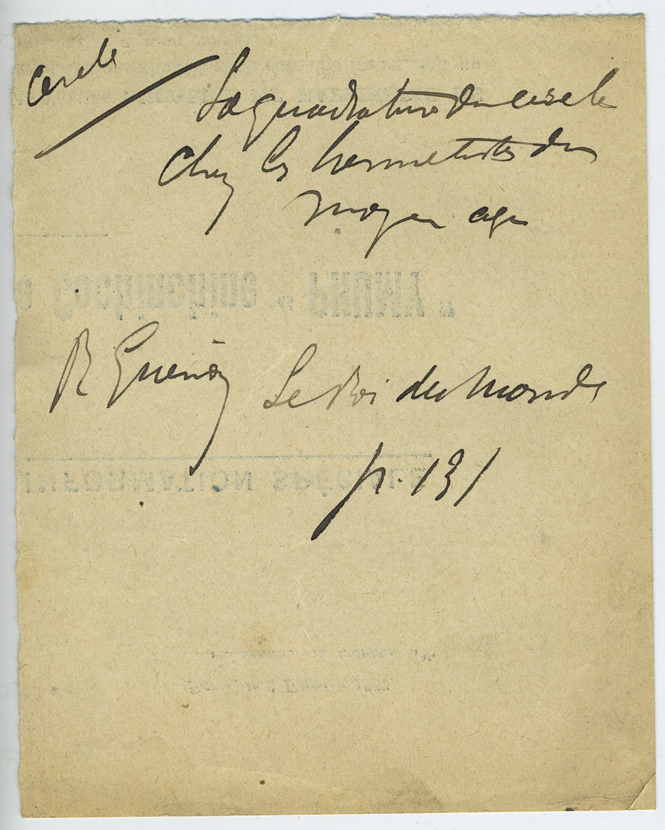 cercle
La quadrature du cercle
chez les hermetistes du
moyen age
R Guénon Le Roi du Monde
p. 131
Cochinchine "PHUMY"
INFORMATION SPÉCIALE